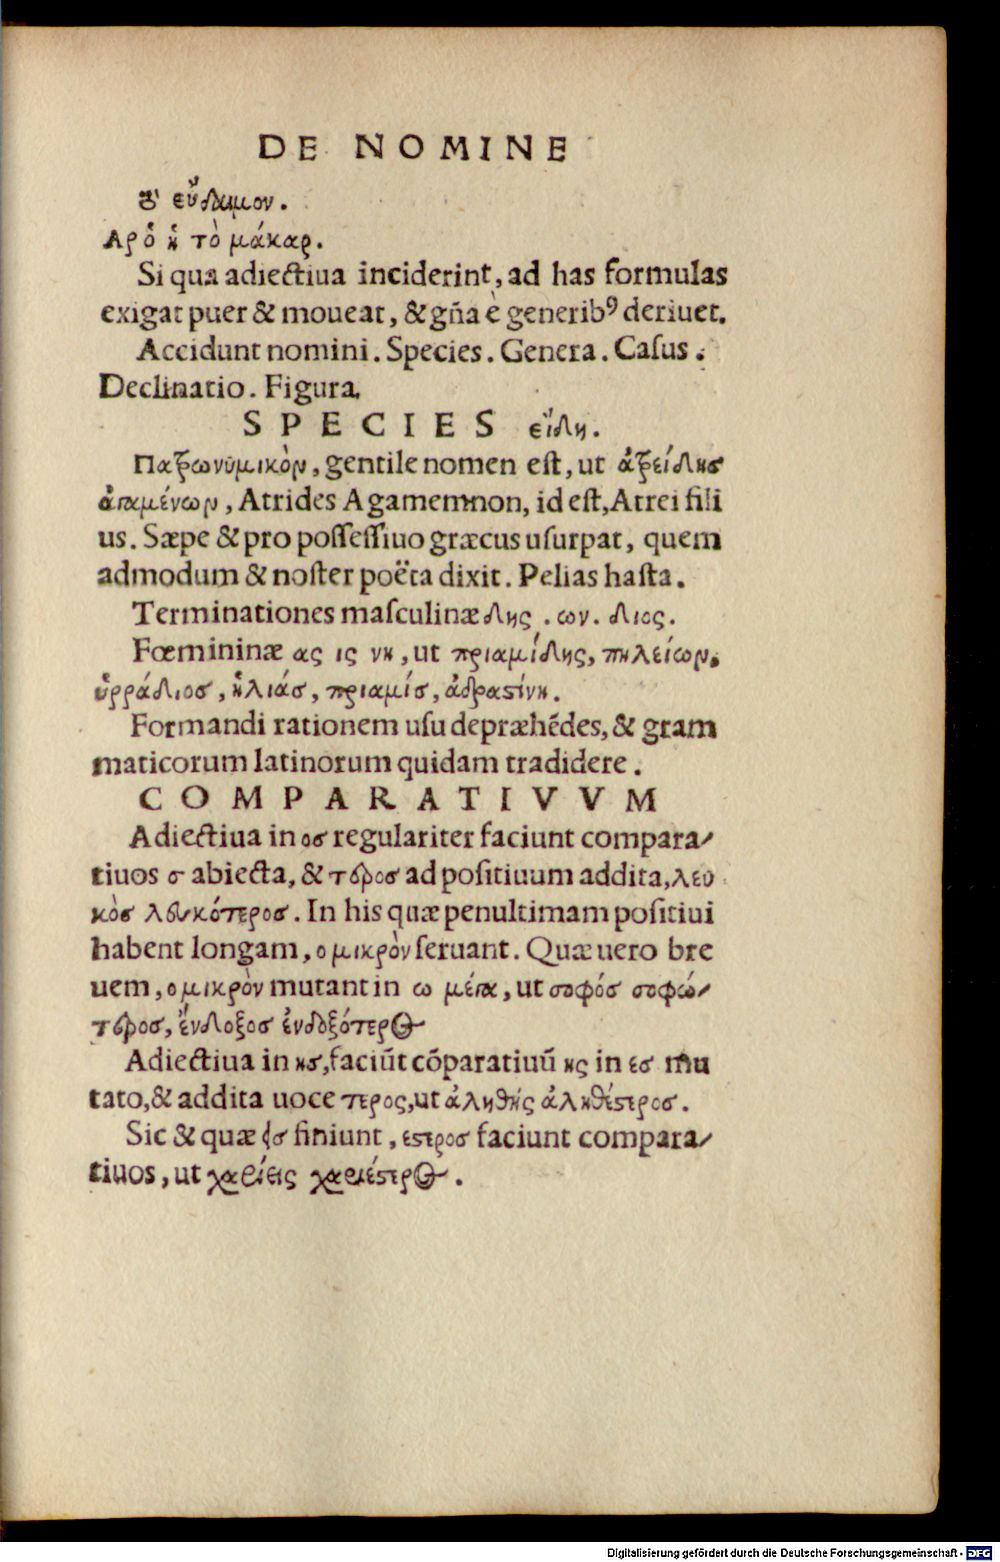 DE NOMINE
ȣ̃ εὔδαιμον.
Αρ ὁ ἡ τὸ μάκαρ.
Si qua adiectiua inciderint, ad has formulas
exigat puer & moueat, & gña è generibꝰ deriuet.
Accidunt nomini. Species. Genera. Casus.
Declinatio. Figura.
SPECIES εἴδη.
Πατρωνυμικὸν, gentile nomen est, ut ἀτρείδησ
ἀγαμέμνων, Atrides Agamemnon, id est, Atrei fili
us. Sæpe & pro possessiuo græcus usurpat, quem
admodum & noster poëta dixit. Pelias hasta.
Terminationes masculinæ δης . ων. διος.
Fœmininæ ας ις νη, ut πριαμίδης, πηλείων,
ὑρράδιοσ, ἡλιάσ, πριαμίσ, ἀδραϛίνη.
Formandi rationem usu depræhẽdes, & gram
maticorum latinorum quidam tradidere.
COMPARATIVVM
Adiectiua in οσ regulariter faciunt compara/
tiuos σ abiecta, & τεροσ ad positiuum addita, λευ
κὸσ λευκότεροσ. In his quæ penultimam positiui
habent longam, ο μικρὸν seruant. Quæ uero bre
uem, ο μικρὸν mutant in ω μέγα, ut σοφός σοφώ/
τεροσ, ἔνδοξοσ ἐνδοξότερος
Adiectiua in ησ, faciũt cõparatiuũ ης in εσ mu
tato, & addita uoce τερος, ut ἀληθής ἀληθέϛεροσ.
Sic & quæ εισ finiunt, εϛεροσ faciunt compara/
tiuos, ut χαρίεις χαριέϛερος.
Digitalisierung gefördert durch die Deutsche Forschungsgemeinschaft - DFG